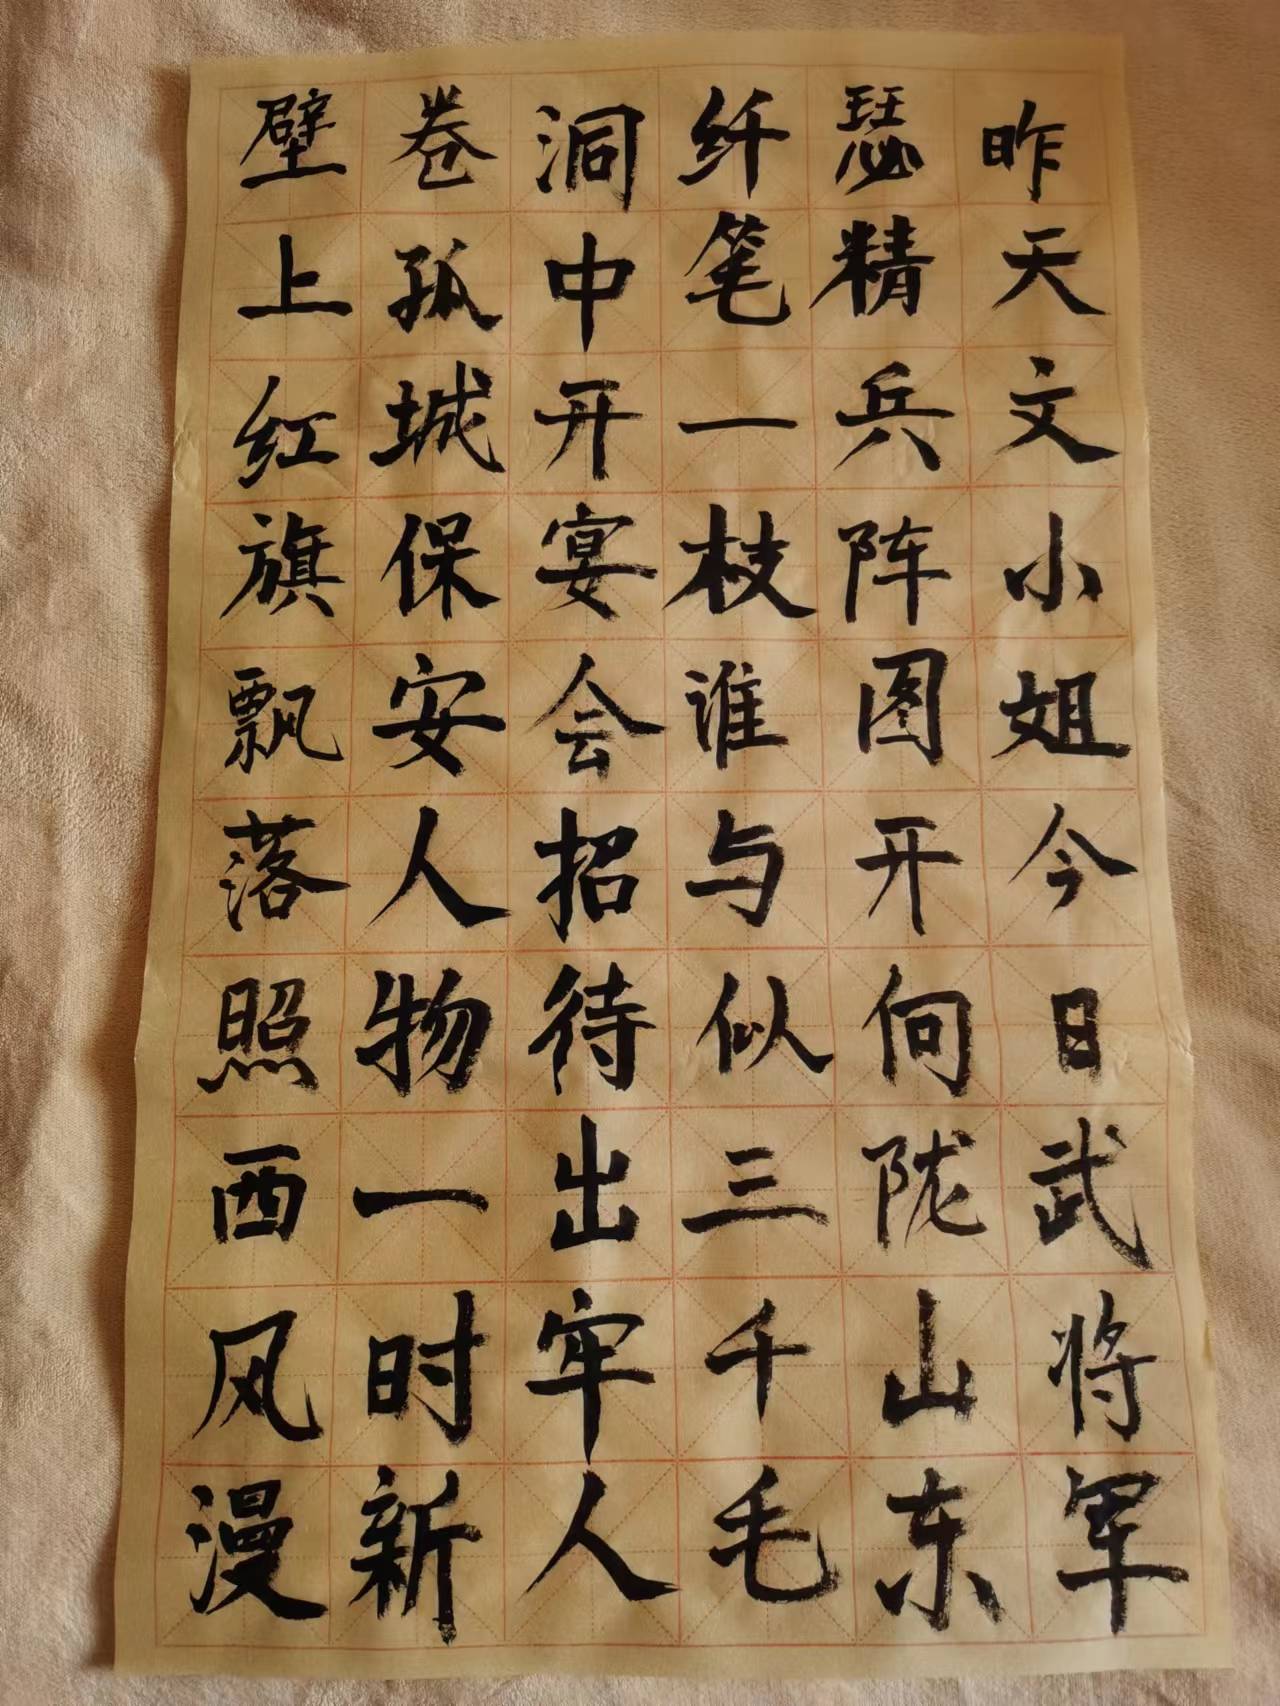 昨天文小姐今日武将军
瑟精兵阵图开向陇山东
纤笔一枝谁与似三千毛
洞中开宴会招待出牢人
卷孤城保安人物一时新
壁上红旗飘落照西风漫